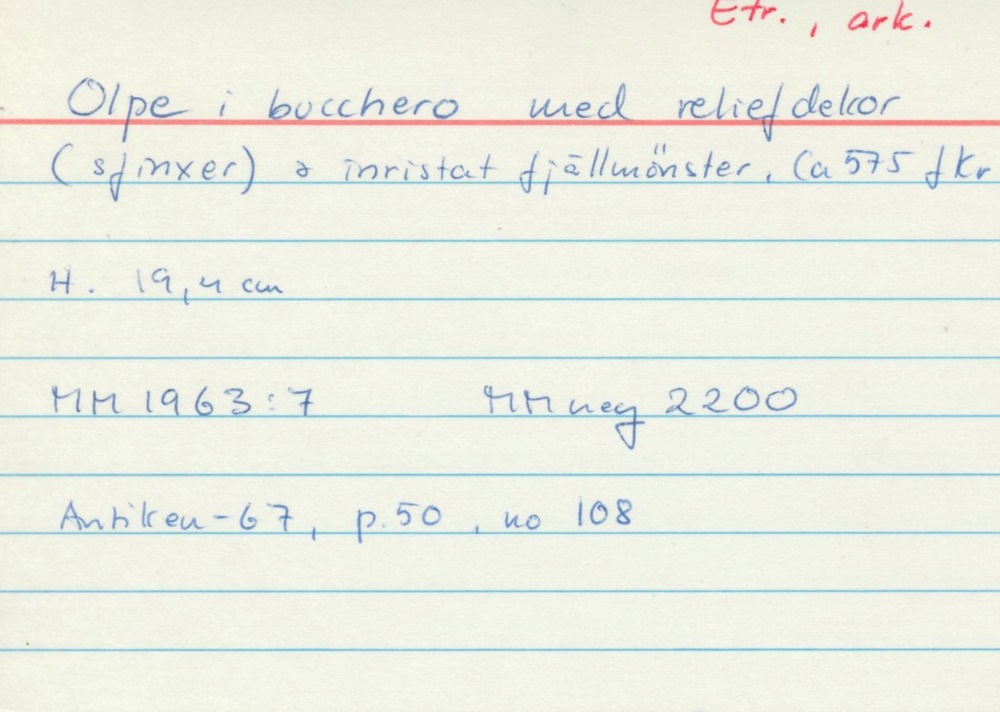 Etr., ark.
Olpe i bucchero med reliefdekor
(sfinxer) & inristat fjällmönster. Ca 575 f Kr
H. 19,4 cm
MM 1963:7 MM neg 2200
Antiken-67, p.50, no 108